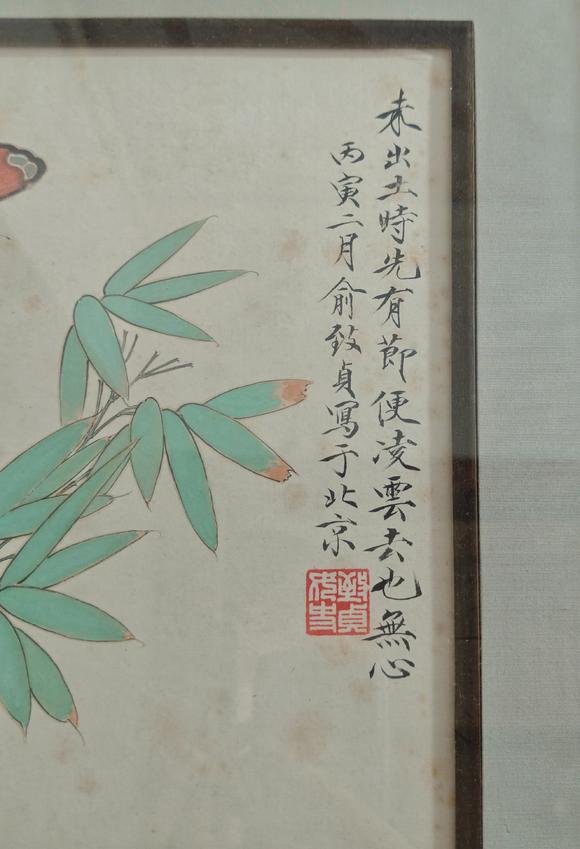 未出土時先有節便凌雲去也無心
丙寅二月俞致貞寫于北京